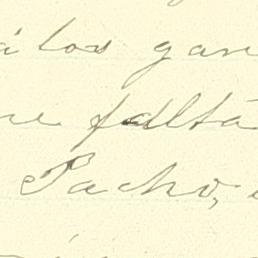 á los gan
me faltá
Pacho,